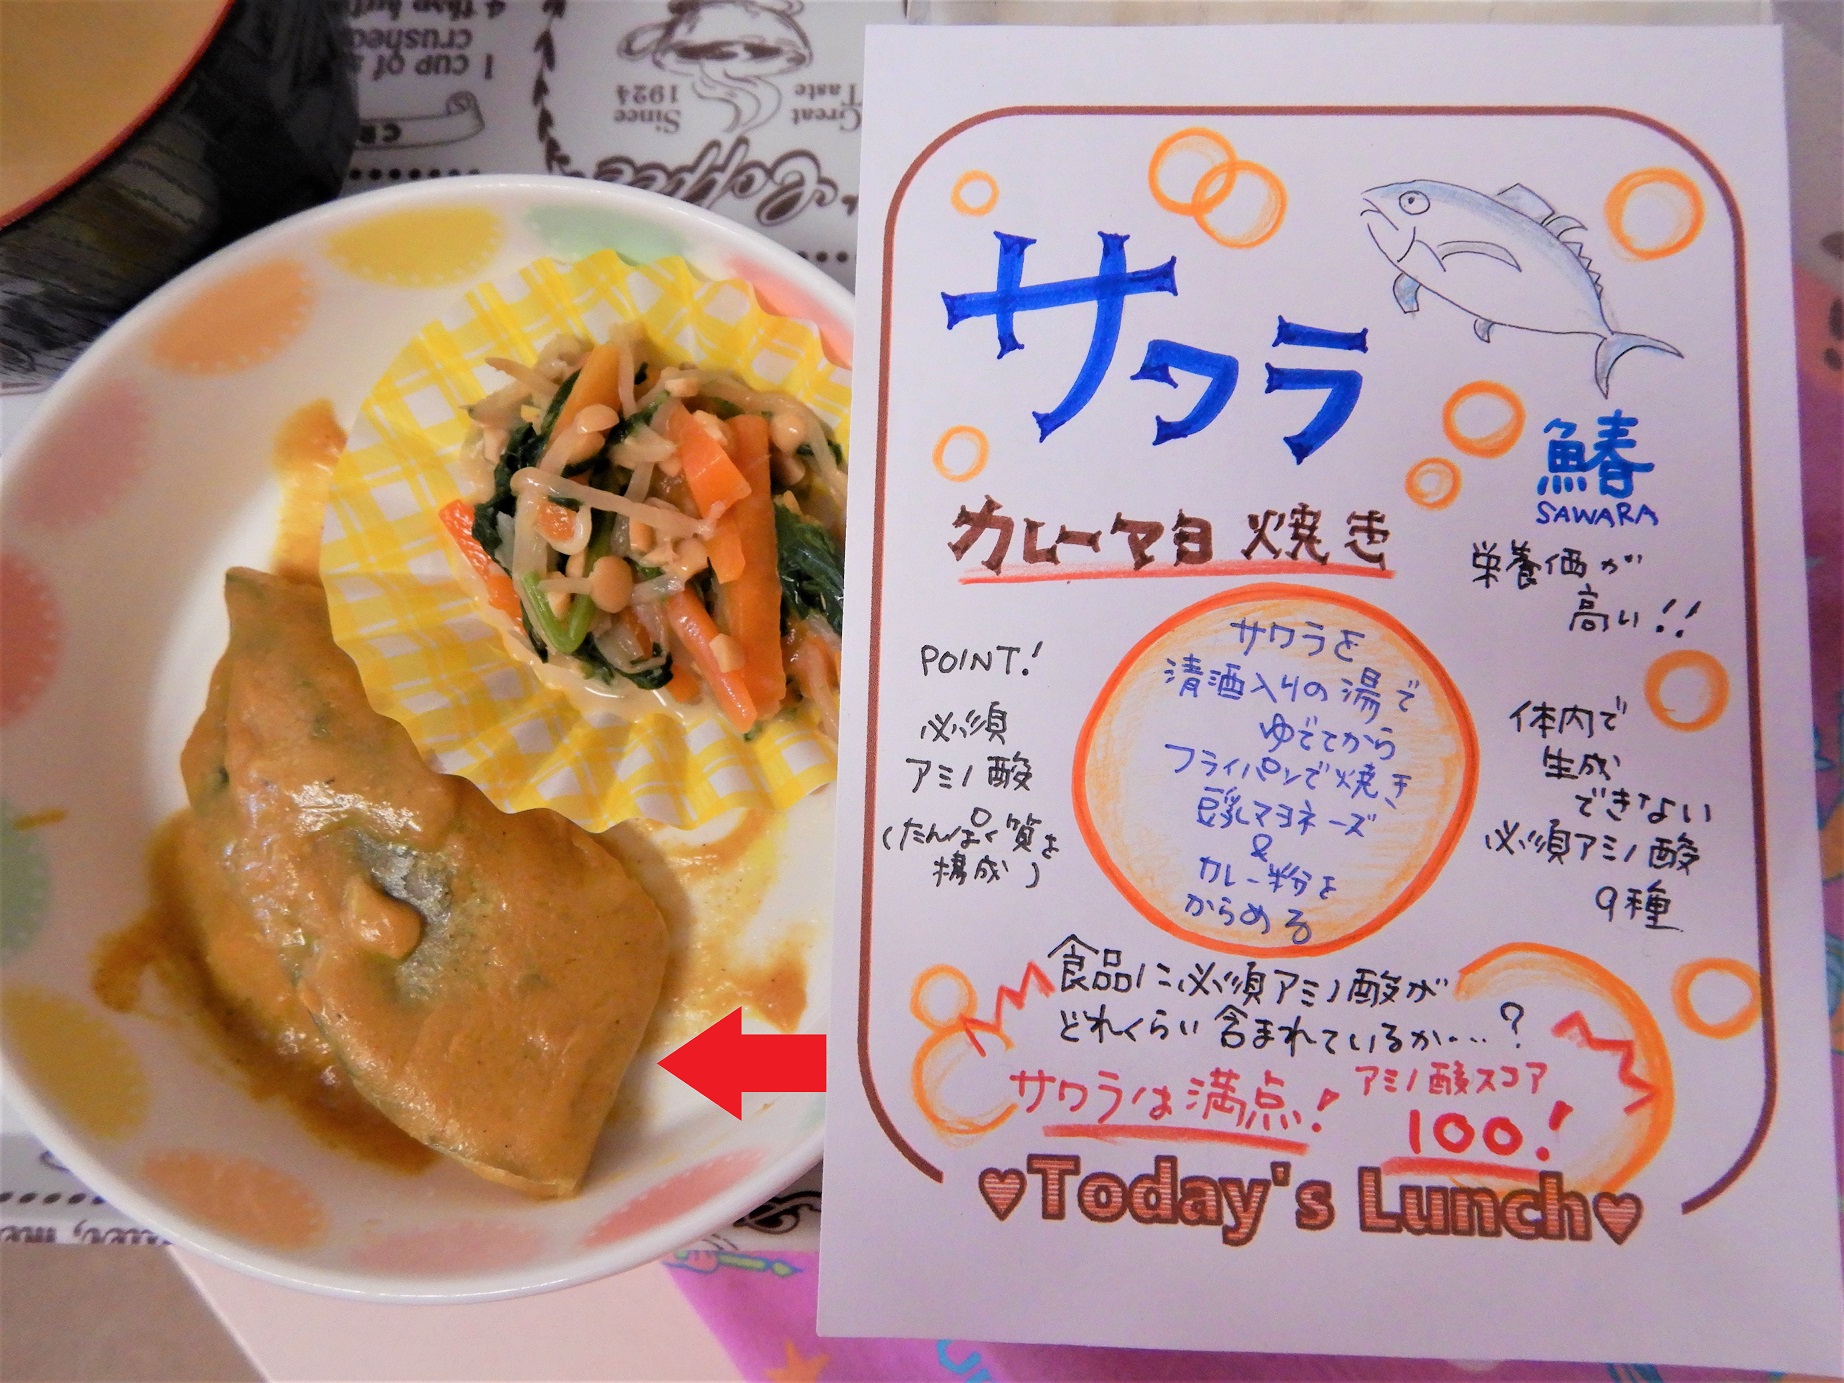 サワラ
鰆
SAWARA
カレーマヨ焼き
栄養価が
高い!!
POINT!
必須
アミノ酸
(たんぱく質を
構成)
サワラを
清酒入りの湯で
ゆでてから
フライパンで焼き
豆乳マヨネーズ
&
カレー粉を
からめる
体内で
生成
できない
必須アミノ酸
9種
食品に必須アミノ酸が
どれくらい含まれているか…?
サワラは満点!
アミノ酸スコア
100!
♥Today's Lunch♥
Coffee
Since
1924
Great
Taste
1 cup of
crushed